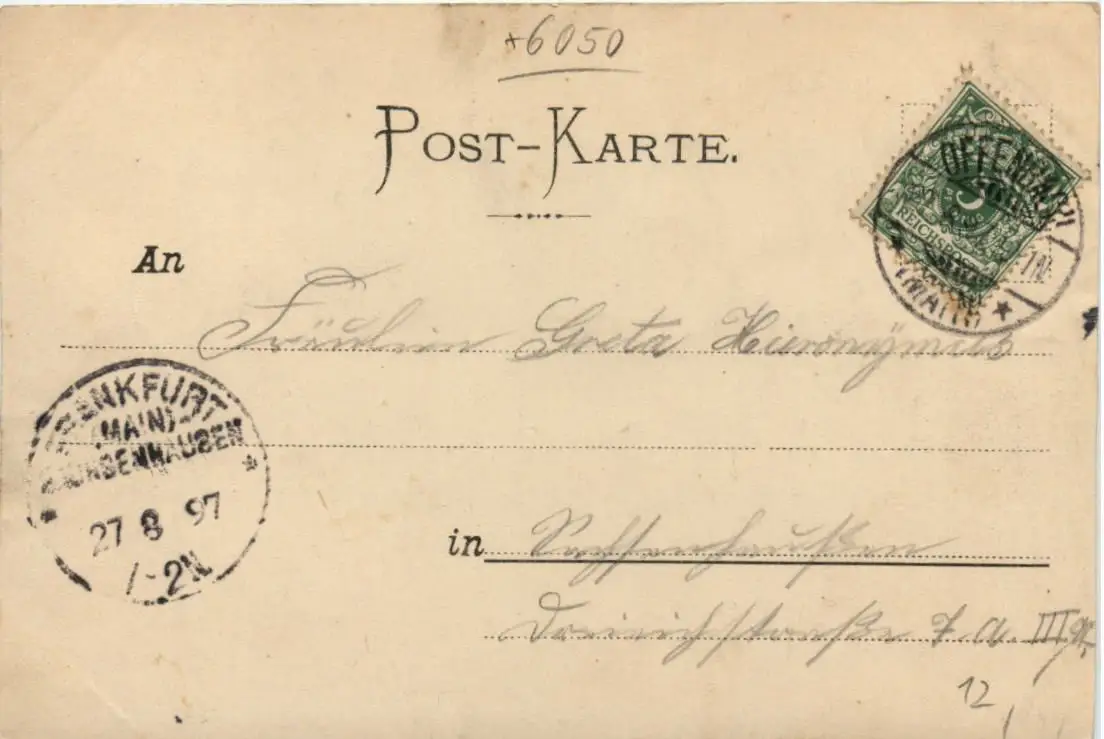 *6050
POST-KARTE.
OFFENBACH
REICHSPOST
(MAIN)
An
Fräulein Greta Hieronymus
FRANKFURT
(MAIN)
SACHSENHAUSEN
27 8 97
1-2N
in Sachsenhausen
Dreieichstraße 7 a. III
12